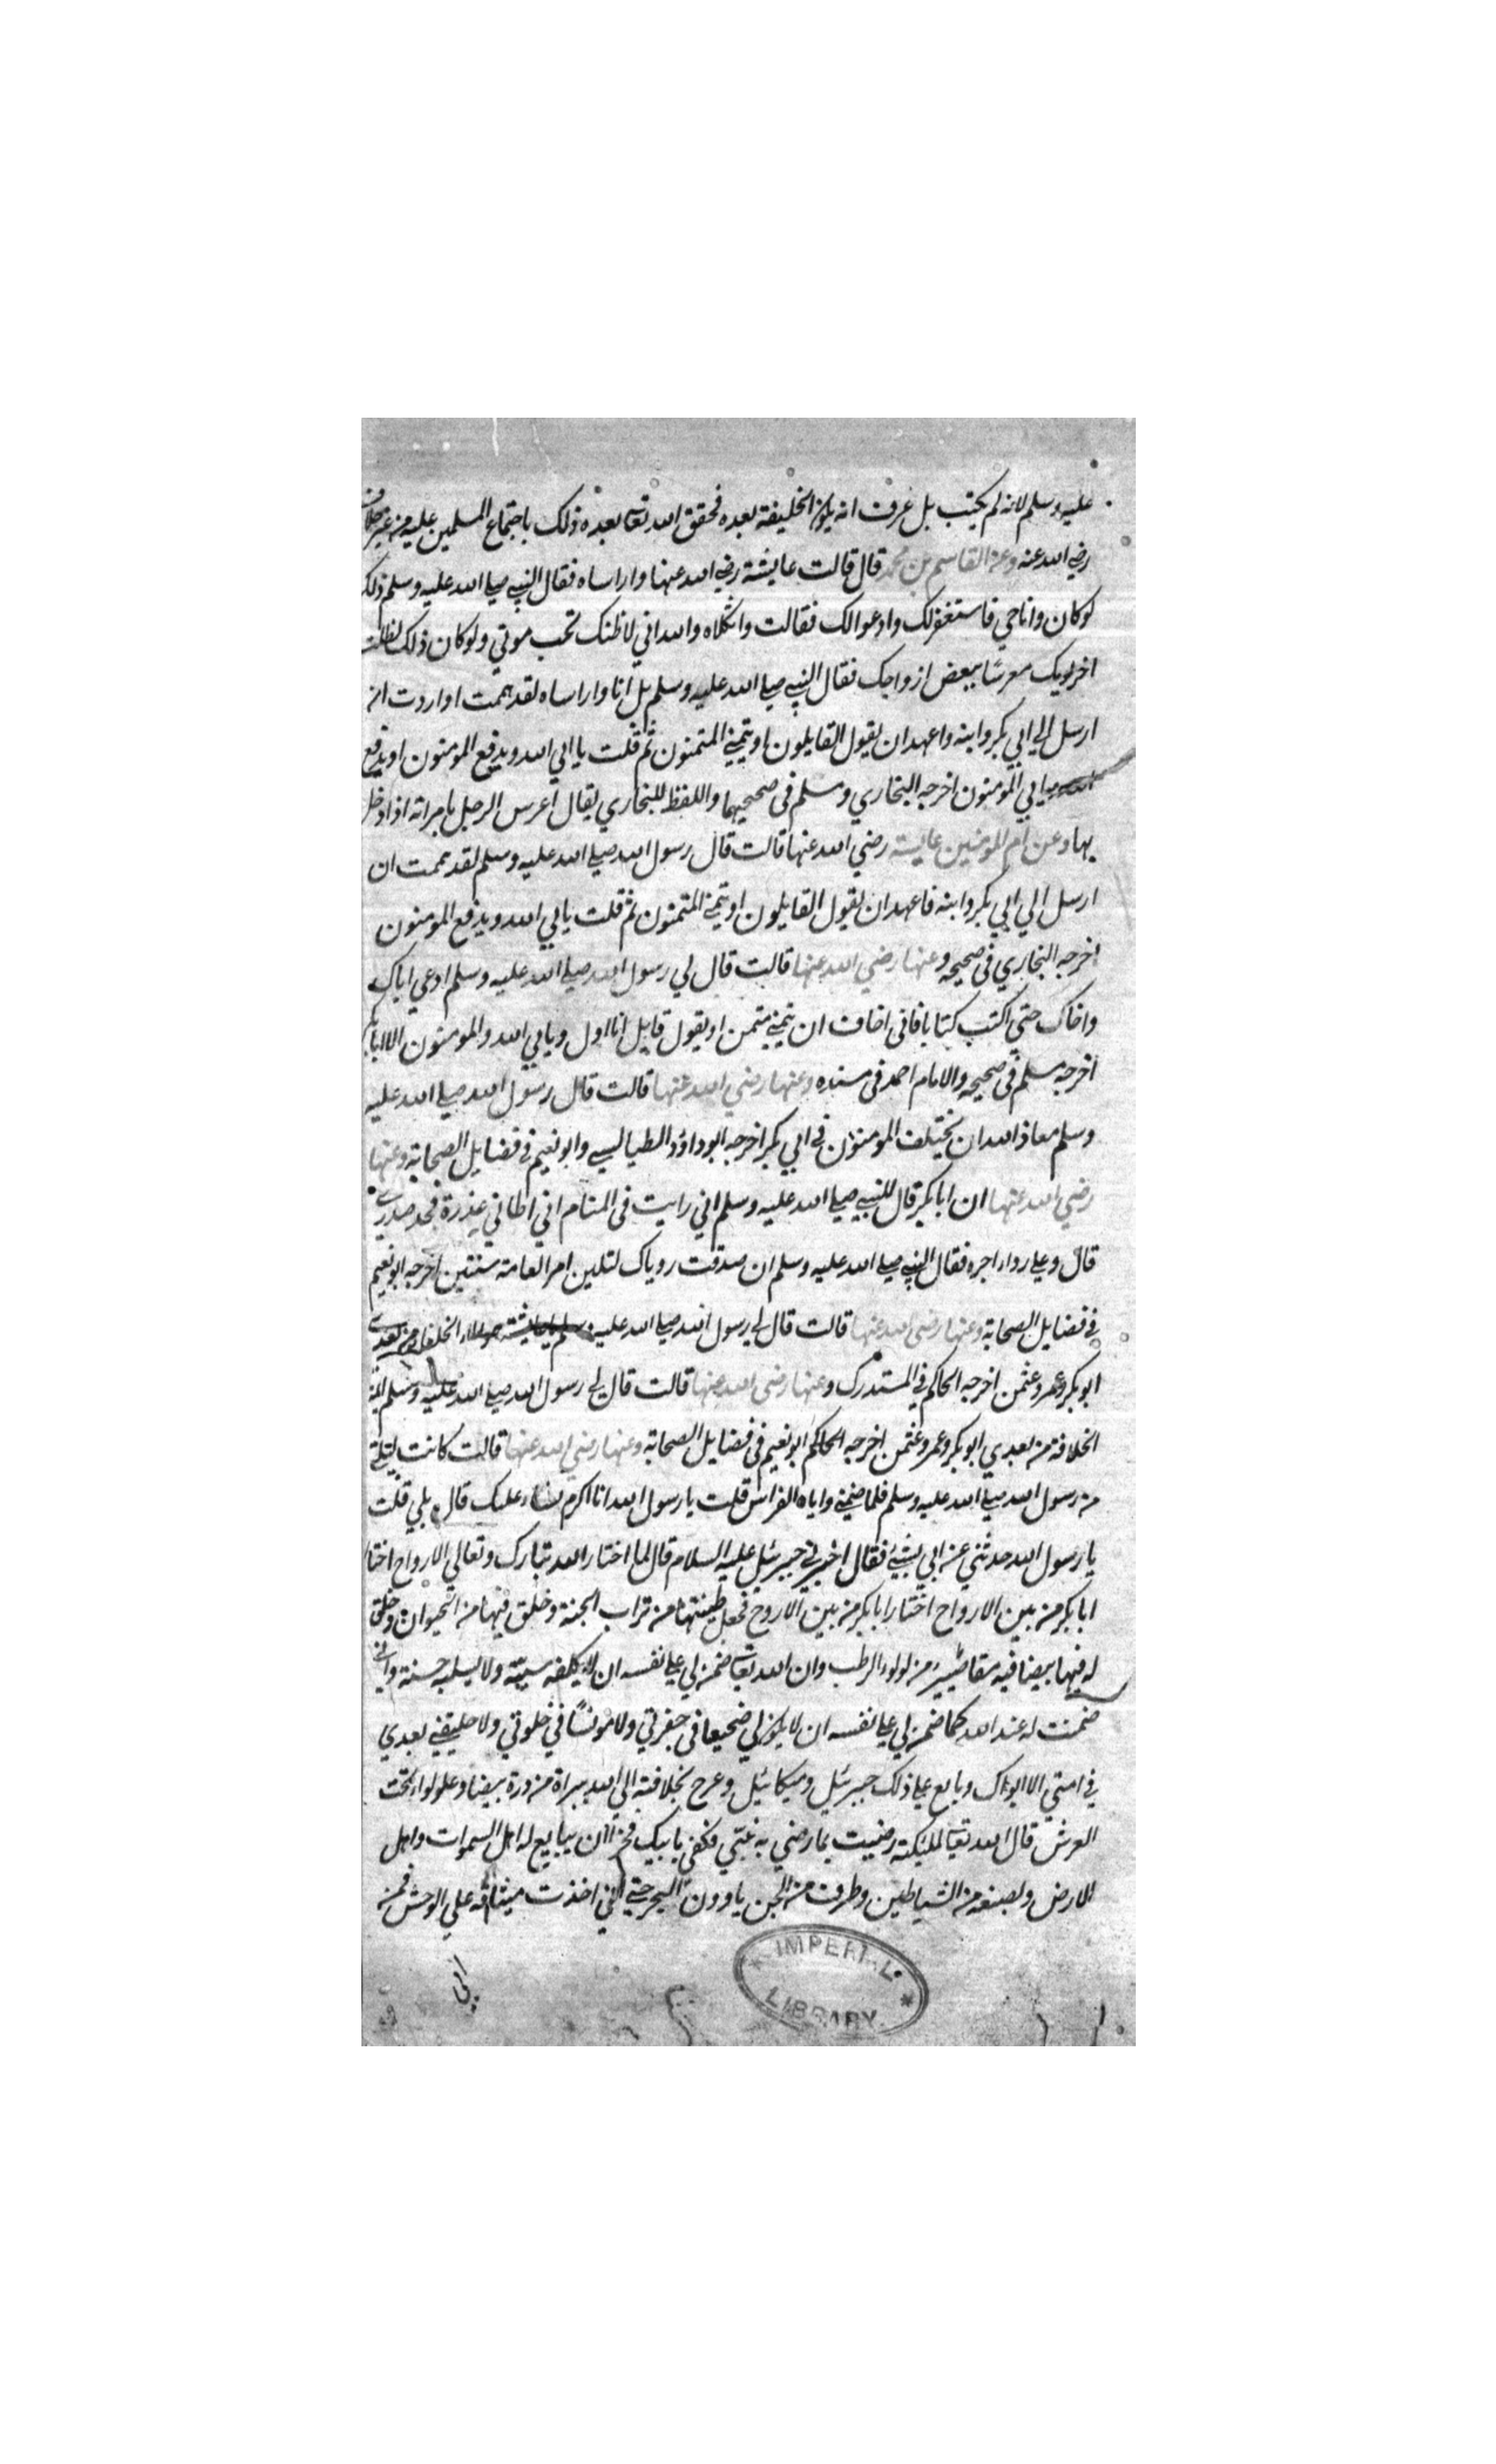 عليه وسلم لانه لم يكتب بل عرف انه يكون الخليفة بعده فحقق الله تعا بعده ذلك باجتماع المسلمين عليه من غير خلاف
رضي الله عنه وعن القاسم بن محمد قال قالت عايشة رضي الله عنها واراساه فقال النبي صلي الله عليه وسلم ذلك
لو كان وانا حي فاستغفر لك وادعو الك فقالت واثكلاه والله اني لاظنك تحب موتي ولو كان ذلك لظللت
اخر يومك معرسًا ببعض ازواجك فقال النبي صلي الله عليه وسلم بل انا واراساه لقد هممت او اردت ان
ارسل الي ابي بكر وابنه واعهد ان يقول القايلون او يتمني المتمنون ثم قلت يا ابي الله ويدفع المومنون او يدفع
الله ويابي المومنون اخرجه البخاري ومسلم في صحيحيهما واللفظ للبخاري يقال اعرس الرجل بامراته اذا دخل
بها وعن ام المومنين عايشة رضي الله عنها قالت قال رسول الله صلي الله عليه وسلم لقد هممت ان
ارسل الي ابي بكر وابنه فاعهد ان يقول القايلون او يتمني المتمنون ثم قلت يابي الله ويدفع المومنون
اخرجه البخاري في صحيحه وعنها رضي الله عنها قالت قال لي رسول الله صلي الله عليه وسلم ادعي اباك
واخاك حتي اكتب كتابا فاني اخاف ان يتمني متمن او يقول قايل انا اول ويابي الله والمومنون الا ابا بكر
اخرجه مسلم في صحيحه والامام احمد في مسنده وعنها رضي الله عنها قالت قال رسول الله صلي الله عليه
وسلم معاذ الله ان يختلف المومنون في ابي بكر اخرجه ابو داؤد الطيالسي وابو نعيم في فضايل الصحابة وعنها
رضي الله عنها ان ابا بكر قال للنبي صلي الله عليه وسلم اني رايت في المنام اني اطاني عذرة فجد صدري
قال وعلي رداء اجره فقال النبي صلي الله عليه وسلم ان صدقت روياك لتلين امر العامة سنتين اخرجه ابو نعيم
في فضايل الصحابة وعنها رضي الله عنها قالت قال لي رسول الله صلي الله عليه وسلم يا عايشة هولاء الخلفاء من بعدي
ابو بكر وعمر وعثمن اخرجه الحاكم في المستدرك وعنها رضي الله عنها قالت قال لي رسول الله صلي الله عليه وسلم
الخلافة من بعدي ابو بكر وعمر وعثمن اخرجه الحاكم ابو نعيم في فضايل الصحابة وعنها رضي الله عنها قالت كانت ليلتي
من رسول الله صلي الله عليه وسلم فلما ضمني واياه الفراش قلت يا رسول الله انا اكرم نساء عليك قال بلي قلت
يا رسول الله حدثني عن ابي بشيئ فقال اخبرني جبرئيل عليه السلام قال لما اختار الله تبارك وتعالي الارواح اختار
ابا بكر من بين الارواح اختار ابا بكر من بين الاروح فجعل طينتها من تراب الجنة وخلق فيها من الحيوان وخلق
له فيها بيضا فيه مقاصير من لولوء الرطب وان الله تعا ضمن لي علي نفسه ان لا يكلفه سيئة ولا يسلبه حسنة واني
ضمنت له عند الله كما ضمن لي علي نفسه ان لا يكون لي ضجيعا في حفرتي ولا مونسًا في خلوتي ولا خليفتي بعدي
في امتي الا ابوك وبايع علي ذلك جبرئيل وميكائيل وعرج بخلافته الي الله ببراة من درة بيضا وعلو لواء تحت
العرش قال الله تعا لملئكته رضيت بما رضي به نبيي فكفي بابيك فخرًا ان يبايع له اهل السموات واهل
الارض وبصنعه من الشياطين وطرف من الجن ياوون البحر حتي اني اخذت ميثاقه علي الوحش فمن
ابي
IMPERIAL LIBRARY